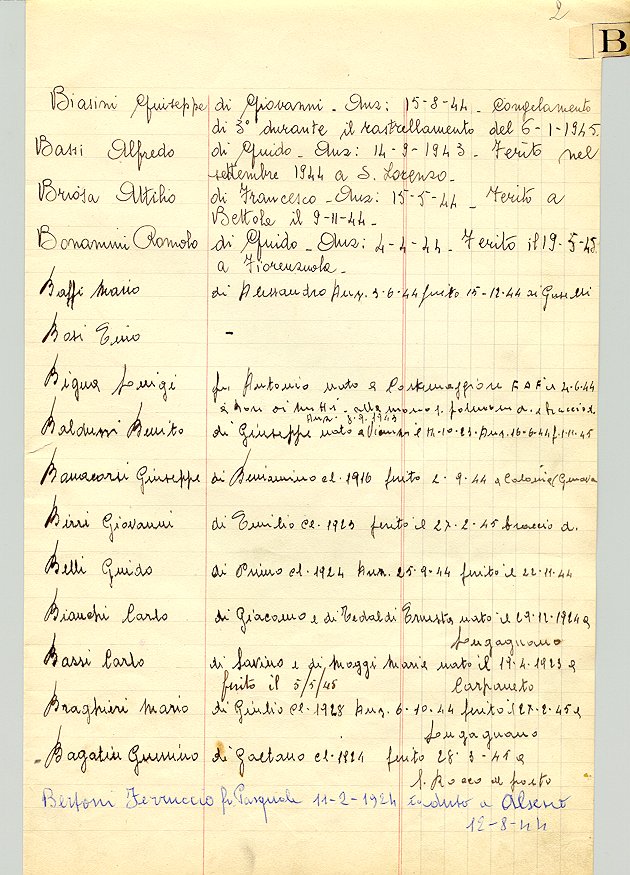 2
B
Biasini Giuseppe di Giovanni - Anz: 15-8-44 - Congelamento
di 3° durante il rastrellamento del 6-1-1945.
Bassi Alfredo di Guido - Anz: 14-9-1943 - Ferito nel
settembre 1944 a S. Lorenzo -
Briosa Attilio di Francesco - Anz: 15-5-44 - Ferito a
Bettola il 9-11-44 -
Bonamini Romolo di Guido - Anz: 4-4-44 - Ferito il 19-3-45
a Fiorenzuola -
Baffi Mario di Alessandro Anz. 3.6.44 ferito 15-12-44 ai Guselli
Bosi Enio -
Bigna Luigi fu Antonio nato a
alla mano s.
Anz. 8.9.1943
Balduzzi Benito di Giuseppe nato a il 12-10-23 Anz. 16-6-44 f. 1-11-45
Bavacorsi Giuseppe di Beniamino cl. 1916 ferito 2-9-44 a (Genova
Birri Giovanni di Emilio cl. 1923 ferito il 27-2-45 braccio d.
Belli Guido di Primo cl. 1924 Anz. 25-9-44 ferito il 22-11-44
Bianchi Carlo di Giacomo e di Tedaldi Ernesta nato il 29-12-1924 a
Lugagnano
Bassi Carlo di Savino e di Maggi Maria nato il 19-4-1923 a
ferito il 5/5/45 Carpaneto
Braghieri Mario di Giulio cl. 1928 Anz. 6-10-44 ferito 127-2-45 a
Lugagnano
Bagatin di Gaetano cl. 1924 ferito 28-3-45 a
S. Rocco al porto
Bertoni Ferruccio fu Pasquale 11-2-1924 caduto a Alseno
12-8-44